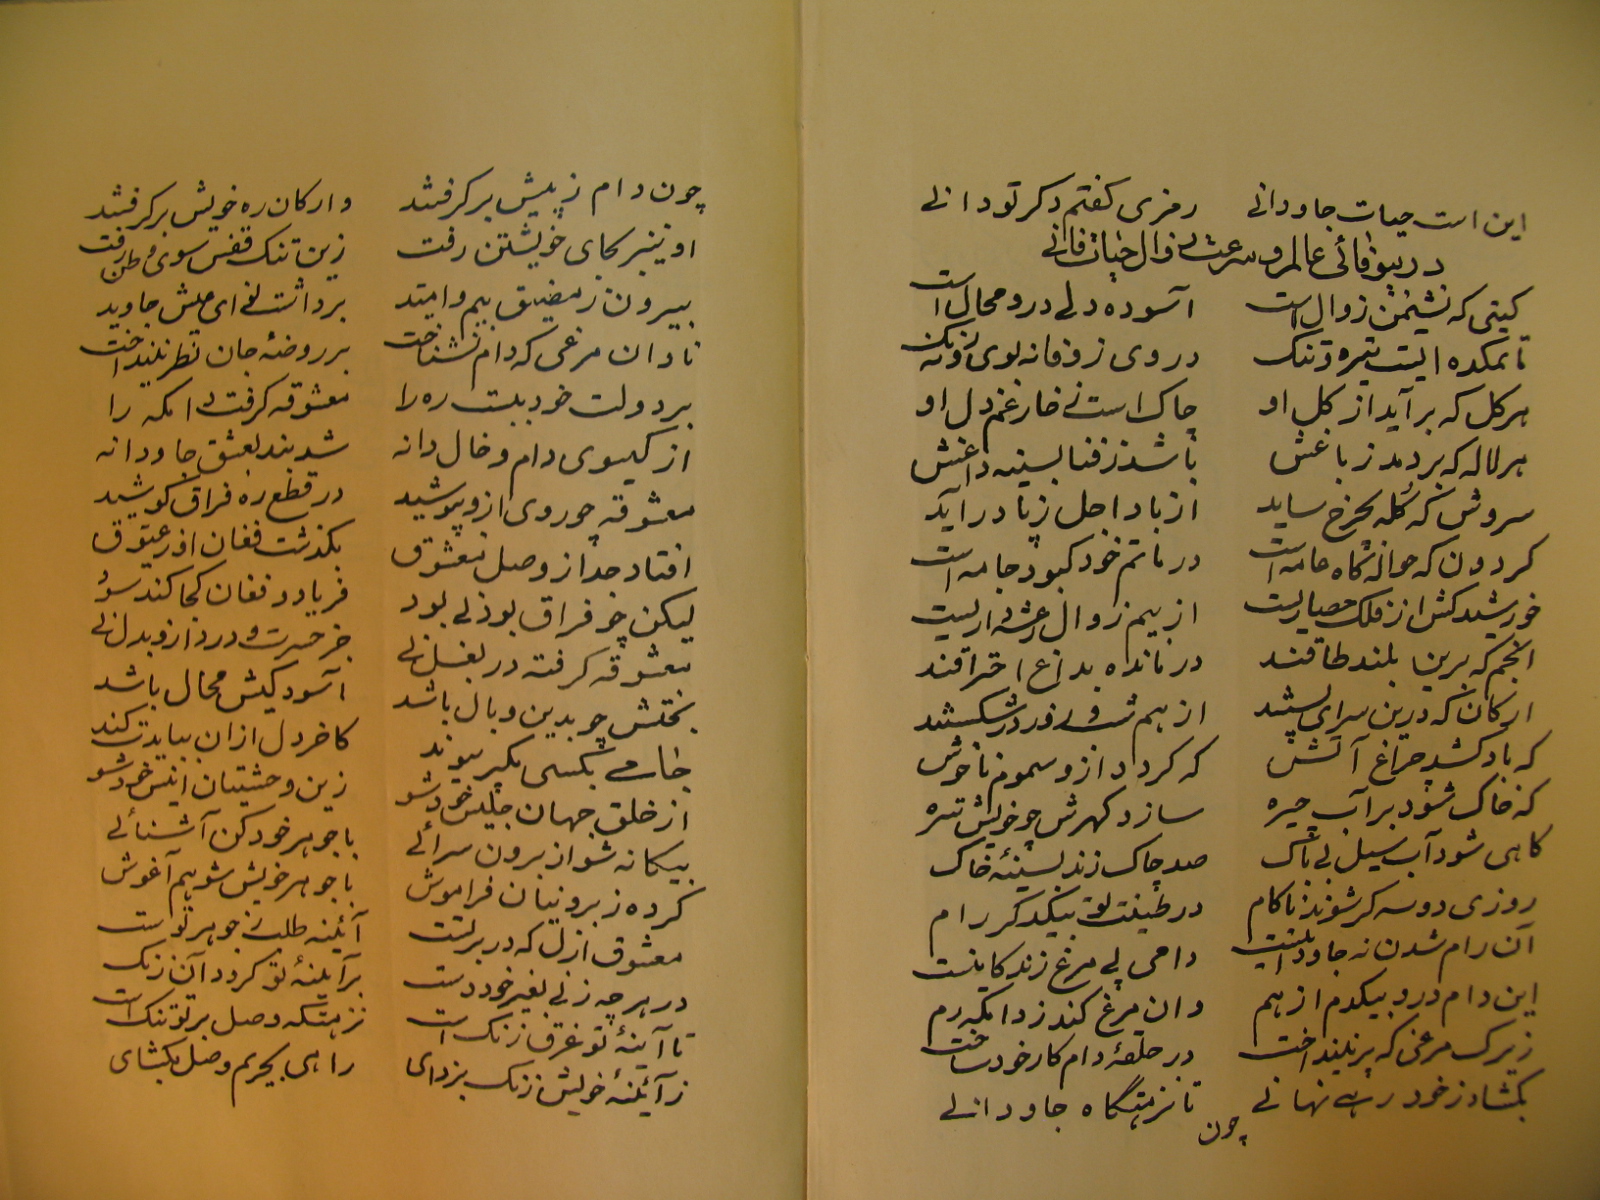 این است حیات جاودانے رمزی گفتم دگر تو دانے
در بیوفائی عالم و سرعت زوال حیات فانے
گیتی که نشیمن زوال است آسوده دلے درو محال است
ماتمکده ایست تیره و تنگ در وی ز وفا نه بوی و نه رنگ
هر گل که برآید از گل او چاک است ز خار غم دل او
هر لاله که بردمد ز باغش باشد ز فنا بسینه داغش
سروش که کُله بچرخ ساید از باد اجل ز پا درآید
گردون که حواله گاه عامه است در ماتم خود کبود جامه است
خورشید کش از فلک حصاریست از بیم زوال رعشه داریست
انجم که برین بلند طاقند درمانده بداغ احتراقند
ارکان که درین سرای پستند از هم شده فرد در شکستند
که باد کشد چراغ آتش که گردد ازو سموم ناخوش
که خاک شود بر آب چیره سازد گهرش چو خویش تیره
گاهی شود آب سیل بی باک صد چاک زند بسینهٔ خاک
روزی دو سه گر شوند ناکام در طینت تو بیکدگر رام
آن رام شدن نه جاودانیست دامی پے مرغ زندگانیست
این دام درو بیکدم از هم وان مرغ کند ز دامگه رم
زیرک مرغی که پر نینداخت در حلقهٔ دام کار خود ساخت
بگشاد ز خود رہے نهانے تا نزهتگاه جاودانے
چون
چون دام ز پیش برگرفتند و ارکان ره خویش برگرفتند
او نیز بجای خویشتن رفت زین تنگ قفس سوی وطن رفت
بیرون ز مضیق بیم و امید برداشت نوای عیش جاوید
نادان مرغی که دام نشناخت بر روضهٔ جان نظر نینداخت
بر دولت خود ببست ره را معشوقه گرفت دامگه را
از گیسوی دام و خال دانه شد بند بعشق جاودانه
معشوقه چو روی ازو بپوشید در قطع ره فراق کوشید
افتاد جدا ز وصل معشوق بگذشت فغان او ز عیوق
لیکن چو فراق بودنی بود فریاد و فغان کجا کند سود
معشوقه گرفته در بغل نے جز حسرت و درد ازو بدل نے
بختش چو بدین وبال باشد آسودگیش محال باشد
جامے بکسی مگیر پیوند کاخر دل ازان ببایدت کند
از خلق جهان جلیس خود شو زین وحشتیان انیس خود شو
بیگانه شو از برون سرائے با جوهر خود کن آشنائے
کرده ز برونیان فراموش با جوهر خویش شو هم آغوش
معشوق ازل که در بر تست آئینه طلب ز جوهر تست
در هر چه زنے بغیر خود دست بر آینهٔ تو گردد آن زنگ
تا آینهٔ تو غرق زنگ است نزهتگه وصل بر تو تنگ است
ز آئینهٔ خویش زنگ بزدای راهی بحریم وصل بگشای